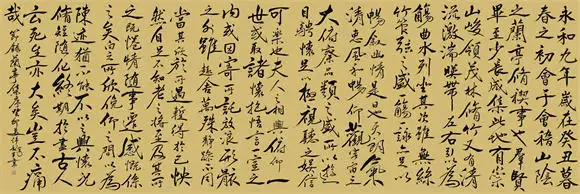 永和九年歲在癸丑暮
春之初會于會稽山陰
之蘭亭脩稧事也群賢
畢至少長咸集此地有崇
山峻領茂林脩竹又有清
流激湍暎帶左右引以為流
觴曲水列坐其次雖無絲
竹管弦之盛一觴一詠亦足以
暢叙幽情是日也天朗氣
清惠風和暢仰觀宇宙之
大俯察品類之盛所以遊
目騁懷足以極視聽之娛信
可樂也夫人之相與俯仰一
世或取諸懷抱悟言一室之
內或因寄所託放浪形骸之
外雖趣舍萬殊靜躁不同
當其欣於所遇暫得於己怏
然自足不知老之將至及其所
之既惓情隨事遷感慨係
之矣向之所欣俛仰之間以為
陳迹猶不能不以之興懷況
脩短隨化終期於盡古人
云死生亦大矣豈不痛
哉 節錄蘭亭集序